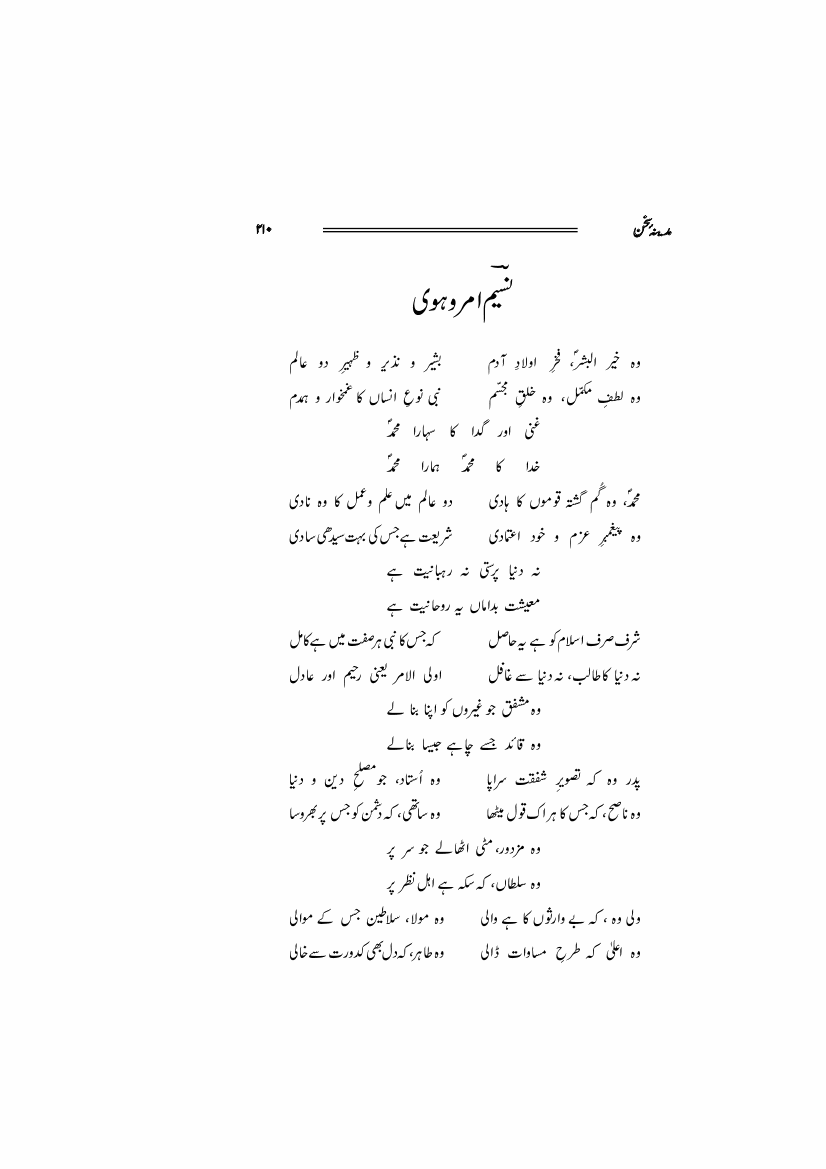 مدینۂ سخن ۲۱۰
نسیم امروہوی
وہ خیر البشرؐ، فخرِ اولادِ آدم بشیر و نذیر و ظہیرِ دو عالم
وہ لطفِ مکمّل، وہ خلقِ مجسّم نبی نوعِ انساں کا غمخوار و ہمدم
غنی اور گدا کا سہارا محمدؐ
خدا کا محمدؐ ہمارا محمدؐ
محمدؐ، وہ گُم گشتہ قوموں کا ہادی دو عالم میں علم وعمل کا وہ نادی
وہ پیغمبرِ عزم و خود اعتمادی شریعت ہے جس کی بہت سیدھی سادی
نہ دنیا پرستی نہ رہبانیت ہے
معیشت بداماں یہ روحانیت ہے
شرف صرف اسلام کو ہے یہ حاصل کہ جس کا نبی ہر صفت میں ہے کامل
نہ دنیا کا طالب، نہ دنیا سے غافل اولی الامر یعنی رحیم اور عادل
وہ مشفق جو غیروں کو اپنا بنا لے
وہ قائد جسے چاہے جیسا بنالے
پدر وہ کہ تصویرِ شفقت سراپا وہ اُستاد، جو مصلحِ دین و دنیا
وہ ناصح، کہ جس کا ہر اک قول میٹھا وہ ساتھی، کہ دشمن کو جس پر بھروسا
وہ مزدور، مٹی اٹھالے جو سر پر
وہ سلطاں، کہ سکہ ہے اہل نظر پر
ولی وہ ، کہ بے وارثوں کا ہے والی وہ مولا، سلاطین جس کے موالی
وہ اعلیٰ کہ طرحِ مساوات ڈالی وہ طاہر، کہ دل بھی کدورت سے خالی